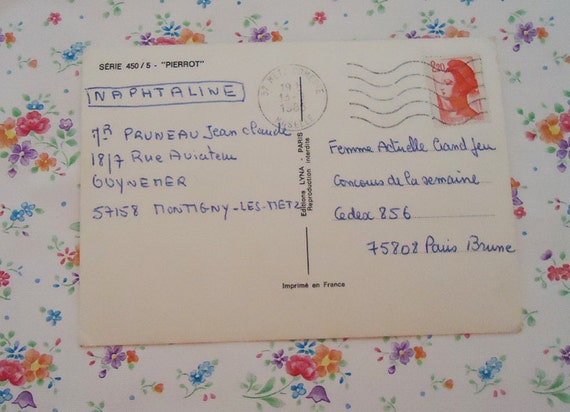 SÉRIE 450/5 - "PIERROT"
NAPHTALINE
Mr PRUNEAU Jean claude
18/7 Rue Aviateur
GUYNEMER
57158 MONTIGNY-LES-METZ
Editions LYNA - PARIS
Reproduction interdite
Imprimé en France
Femme Actuelle Grand Jeu
Concours de la semaine
Cedex 856
75808 Paris Brune